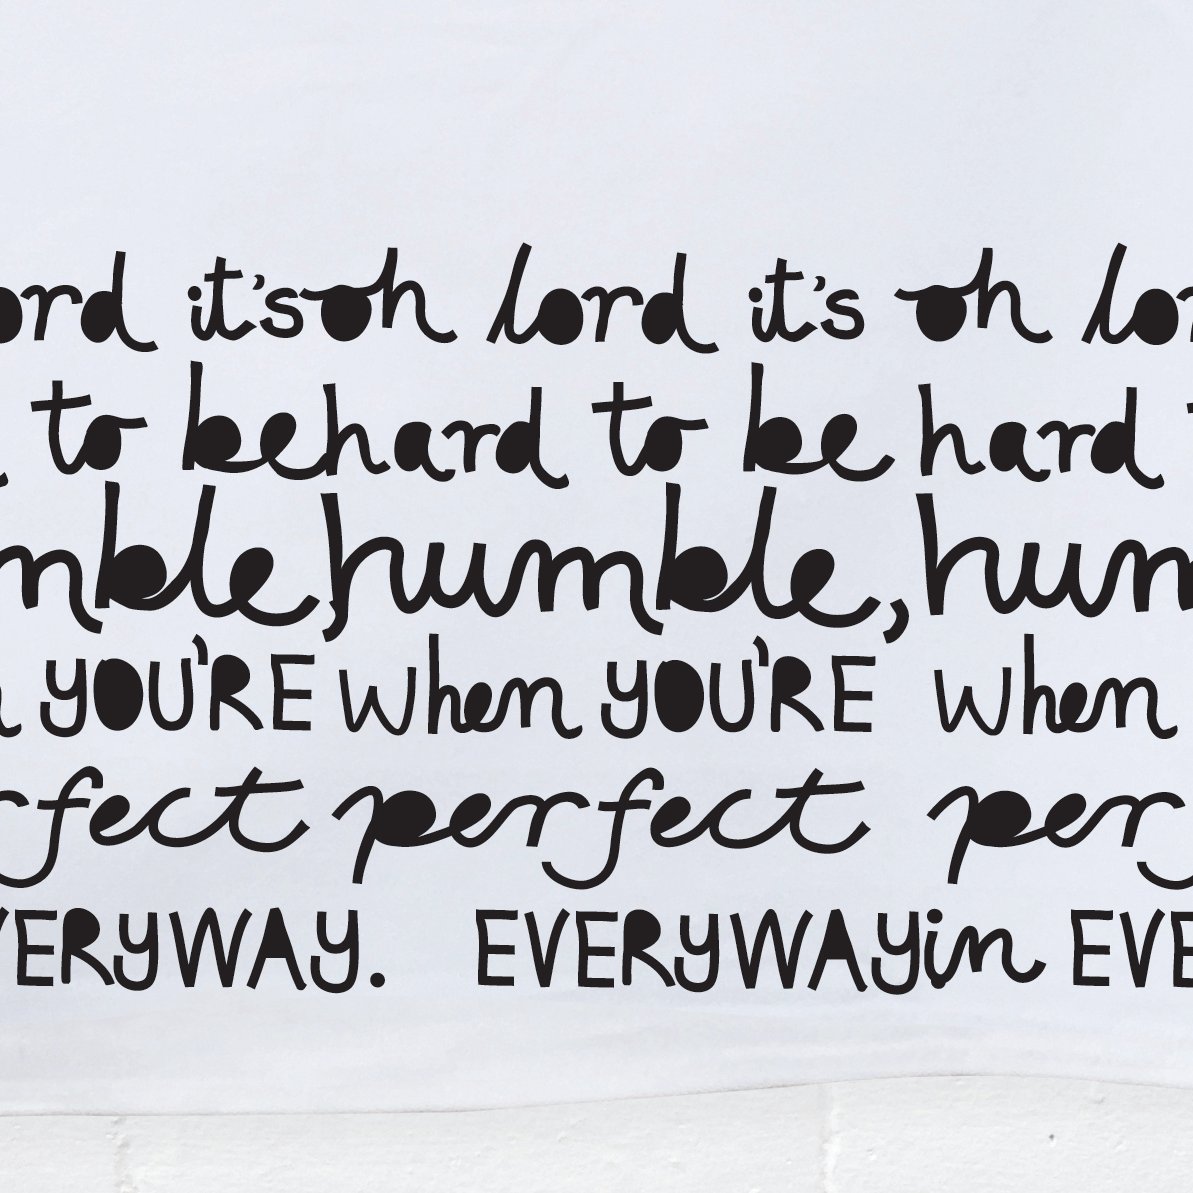 ord it's oh lord it's oh lor
to be hard to be hard t
mble, humble, hum
YOU'RE when YOU'RE when
rfect perfect per
VERYWAY. EVERYWAY in EVE